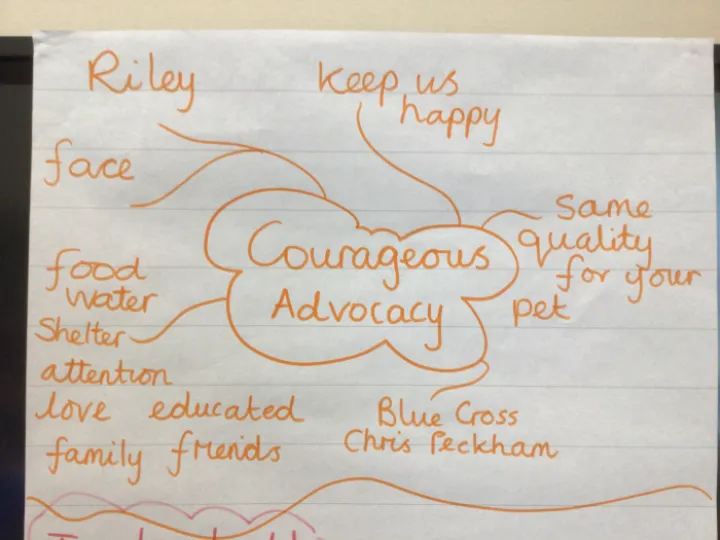 Riley
Keep us
happy
face
Same
quality
for your
pet
Courageous
Advocacy
food
water
Shelter
attention
love educated
family friends
Blue Cross
Chris Peckham